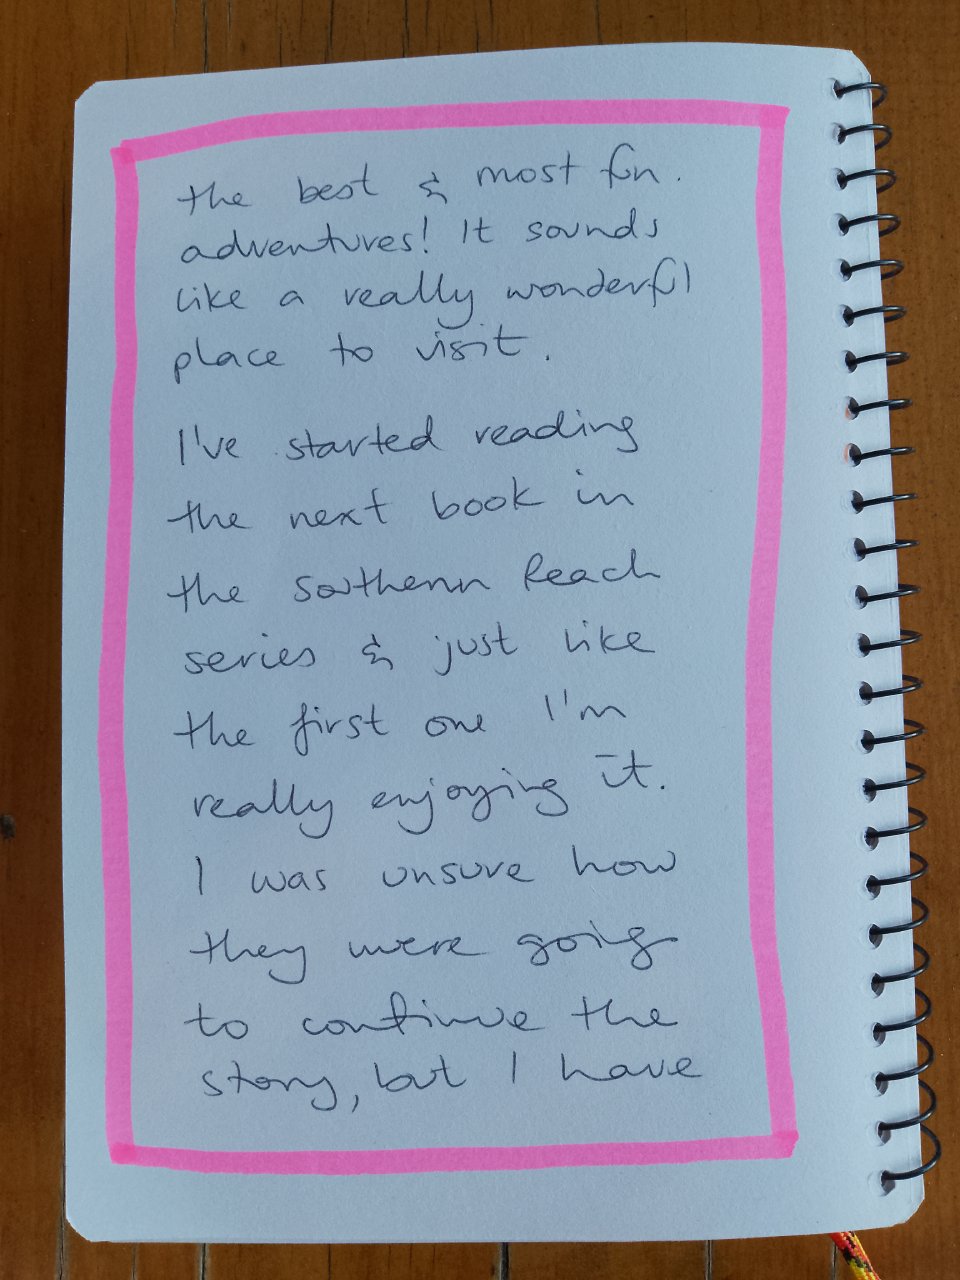 the best & most fun.
adventures! It sounds
like a really wonderful
place to visit.
I've started reading
the next book in
the Southern Reach
series & just like
the first one I'm
really enjoying it.
I was unsure how
they were going
to continue the
story, but I have